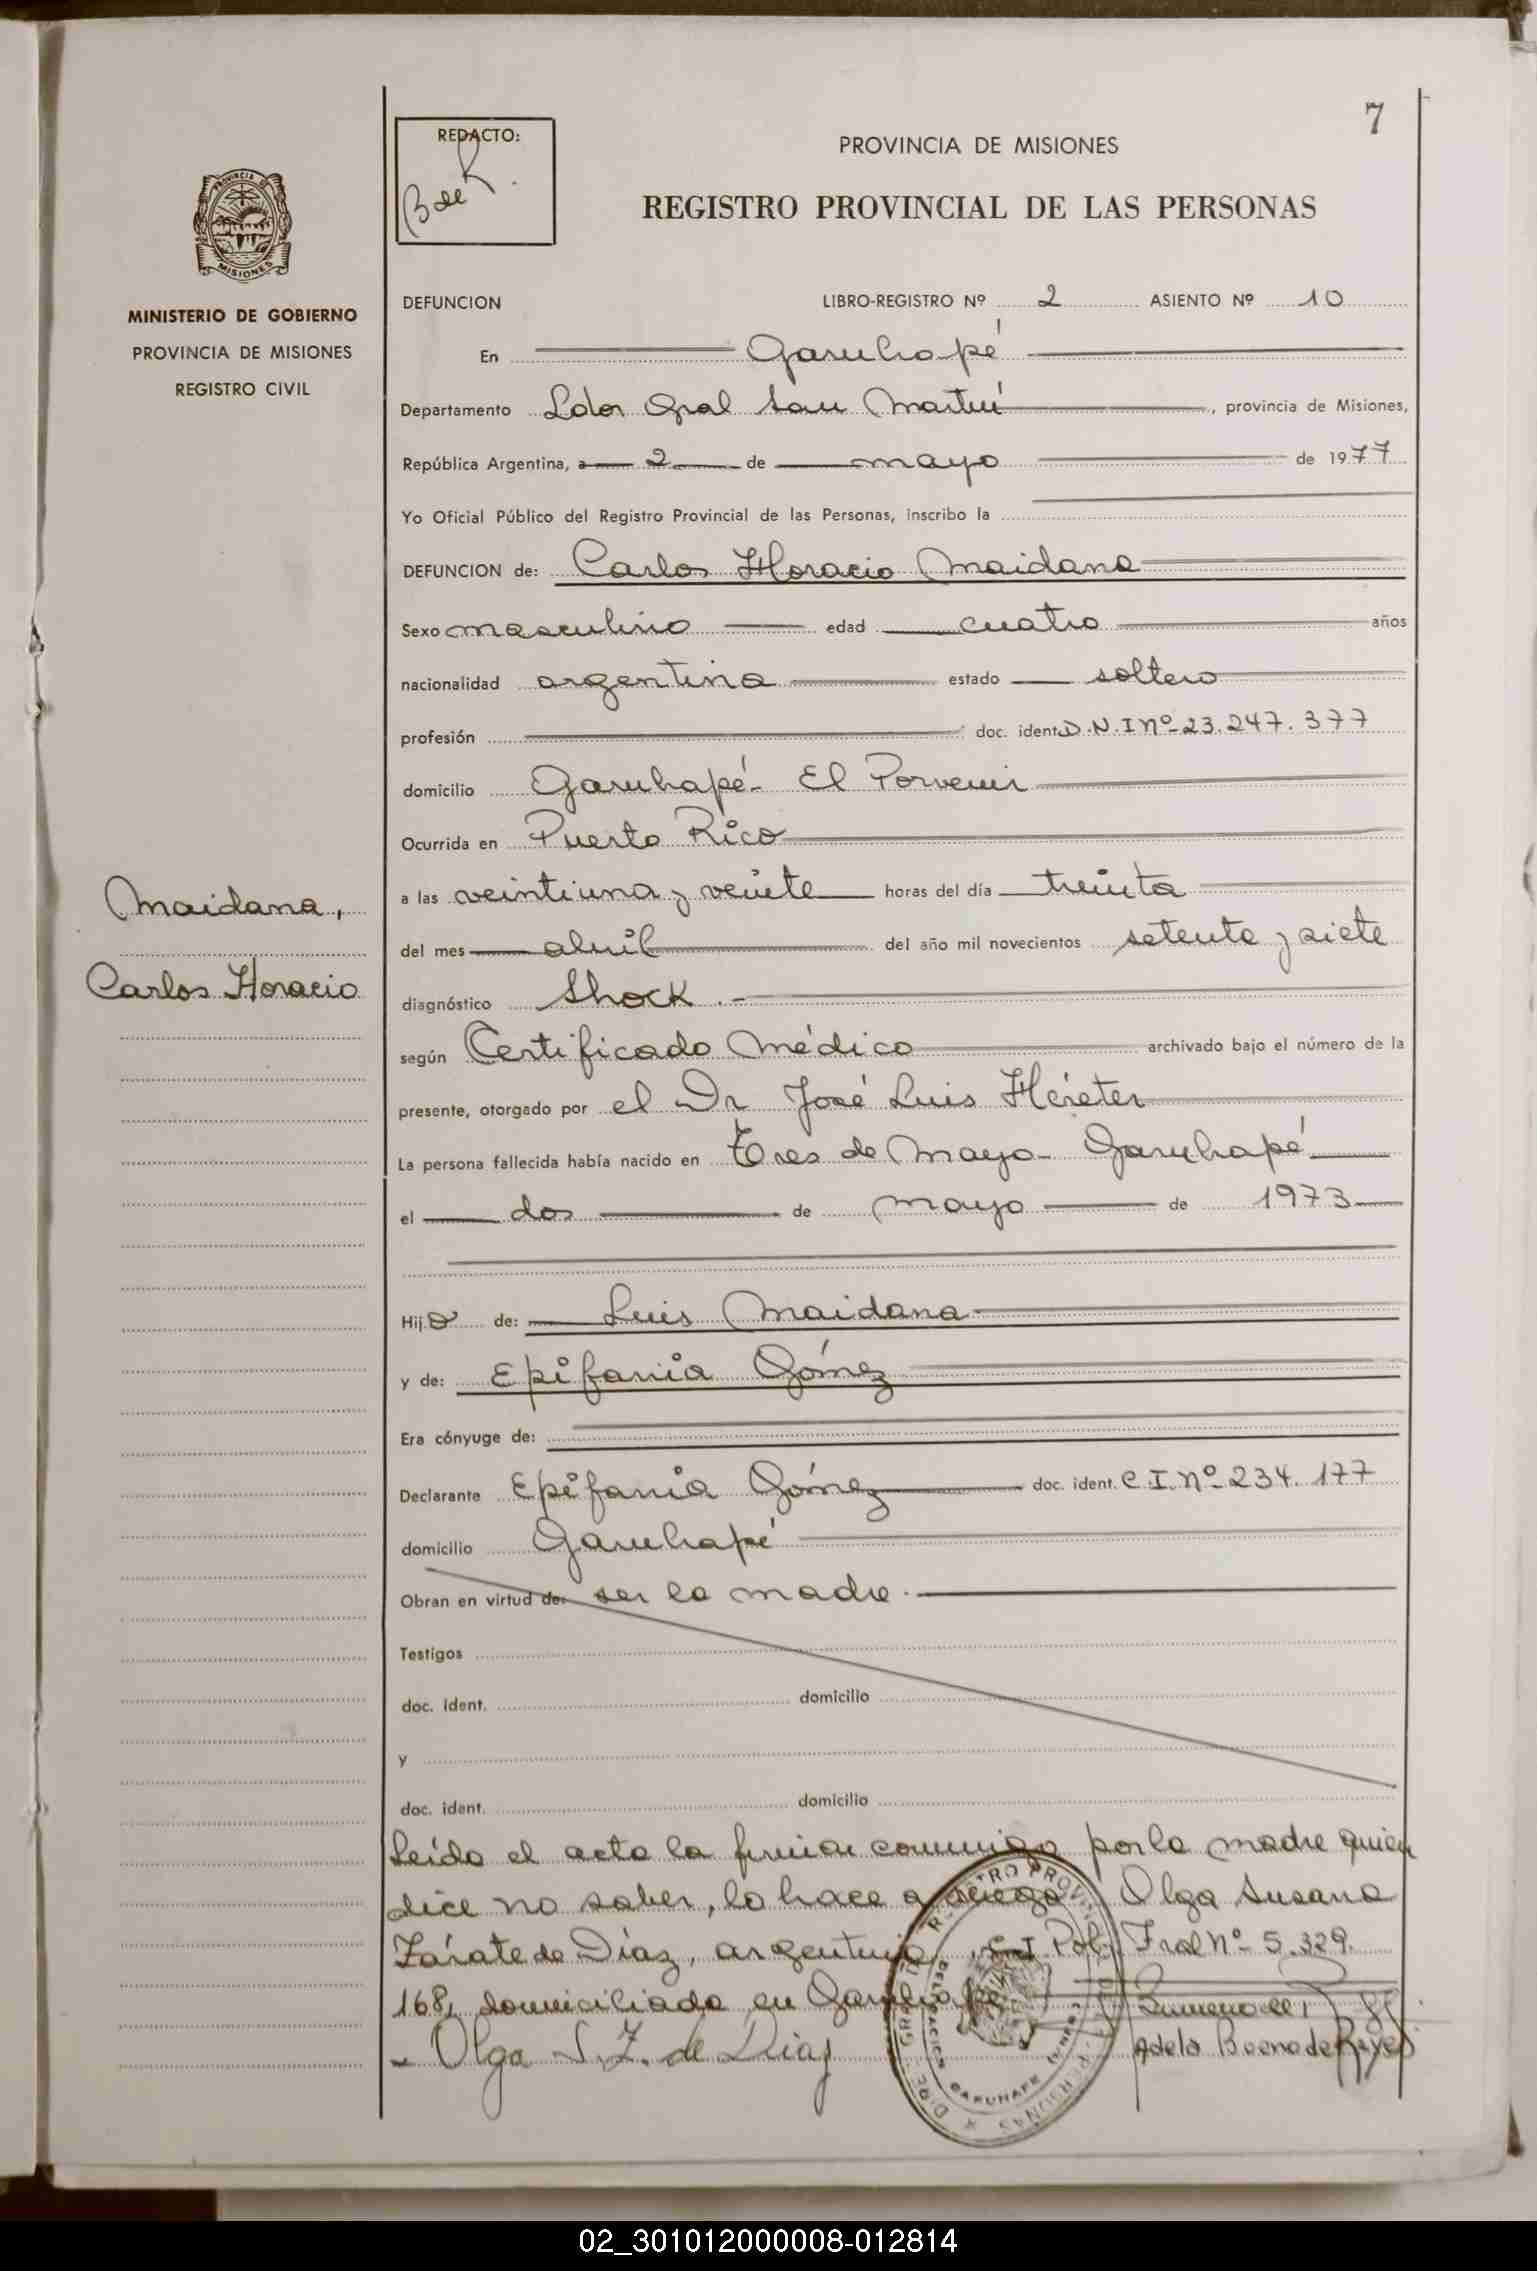 7
REDACTO:
B de R.
PROVINCIA DE MISIONES
REGISTRO PROVINCIAL DE LAS PERSONAS
PROVINCIA DE
MISIONES
MINISTERIO DE GOBIERNO
PROVINCIA DE MISIONES
REGISTRO CIVIL
DEFUNCION LIBRO-REGISTRO Nº 2 ASIENTO Nº 10
En Garuhapé
Departamento Ldor Gral San Martín, provincia de Misiones,
República Argentina, a 2 de mayo de 1977
Yo Oficial Público del Registro Provincial de las Personas, inscribo la
DEFUNCION de: Carlos Horacio Maidana
Sexo masculino edad cuatro años
nacionalidad argentina estado soltero
profesión doc. ident. D.N.I Nº 23.247.377
domicilio Garuhapé - El Porvenir
Ocurrida en Puerto Rico
a las veintiuna y veinte horas del día treinta
del mes abril del año mil novecientos setenta y siete
Maidana,
Carlos Horacio
diagnóstico Shock.-
según Certificado Médico archivado bajo el número de la
presente, otorgado por el Dr José Luis Héreter
La persona fallecida había nacido en Tres de Mayo - Garuhapé
el dos de mayo de 1973
Hijo de: Luis Maidana
y de: Epifania Gómez
Era cónyuge de:
Declarante Epifania Gómez doc. ident. C.I. Nº 234.177
domicilio Garuhapé
Obran en virtud de: ser la madre.
Testigos
doc. ident. domicilio
y
doc. ident. domicilio
Leída el acta la firman conmigo por la madre quien
dice no saber, lo hace a ruego Olga Susana
Zárate de Díaz, argentina, C.I. Pol. Fral Nº 5.329.
168, domiciliada en Garuhapé
- Olga S. Z. de Diaz
Adela Bueno de Reyes
REGISTRO PROVINCIAL PERSONAS
DELEGACION GARUHAPE
02_301012000008-012814